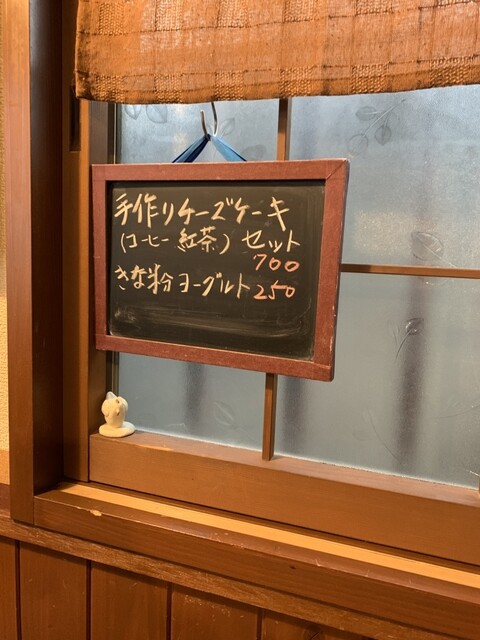 手作りチーズケーキ
(コーヒー 紅茶) セット
700
きな粉ヨーグルト 250